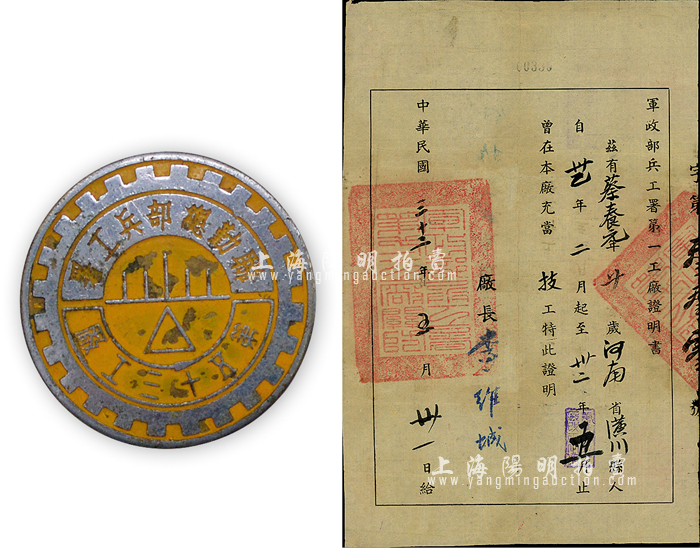 聯勤總部兵工署
第五十三工廠
00336
軍政部兵工署第一工廠證明書
茲有蔡春
廿歲河南省潢川縣人
自
年二月起至卅二年五月止
曾在本廠充當技工特此證明
廠長李維城
中華民國三十二年五月卅一日給
字第
號
上海陽明拍賣
www.yangmingauction.com
上海陽明拍賣
www.yangmingauction.com
上海陽明拍賣
www.yangmingauction.com